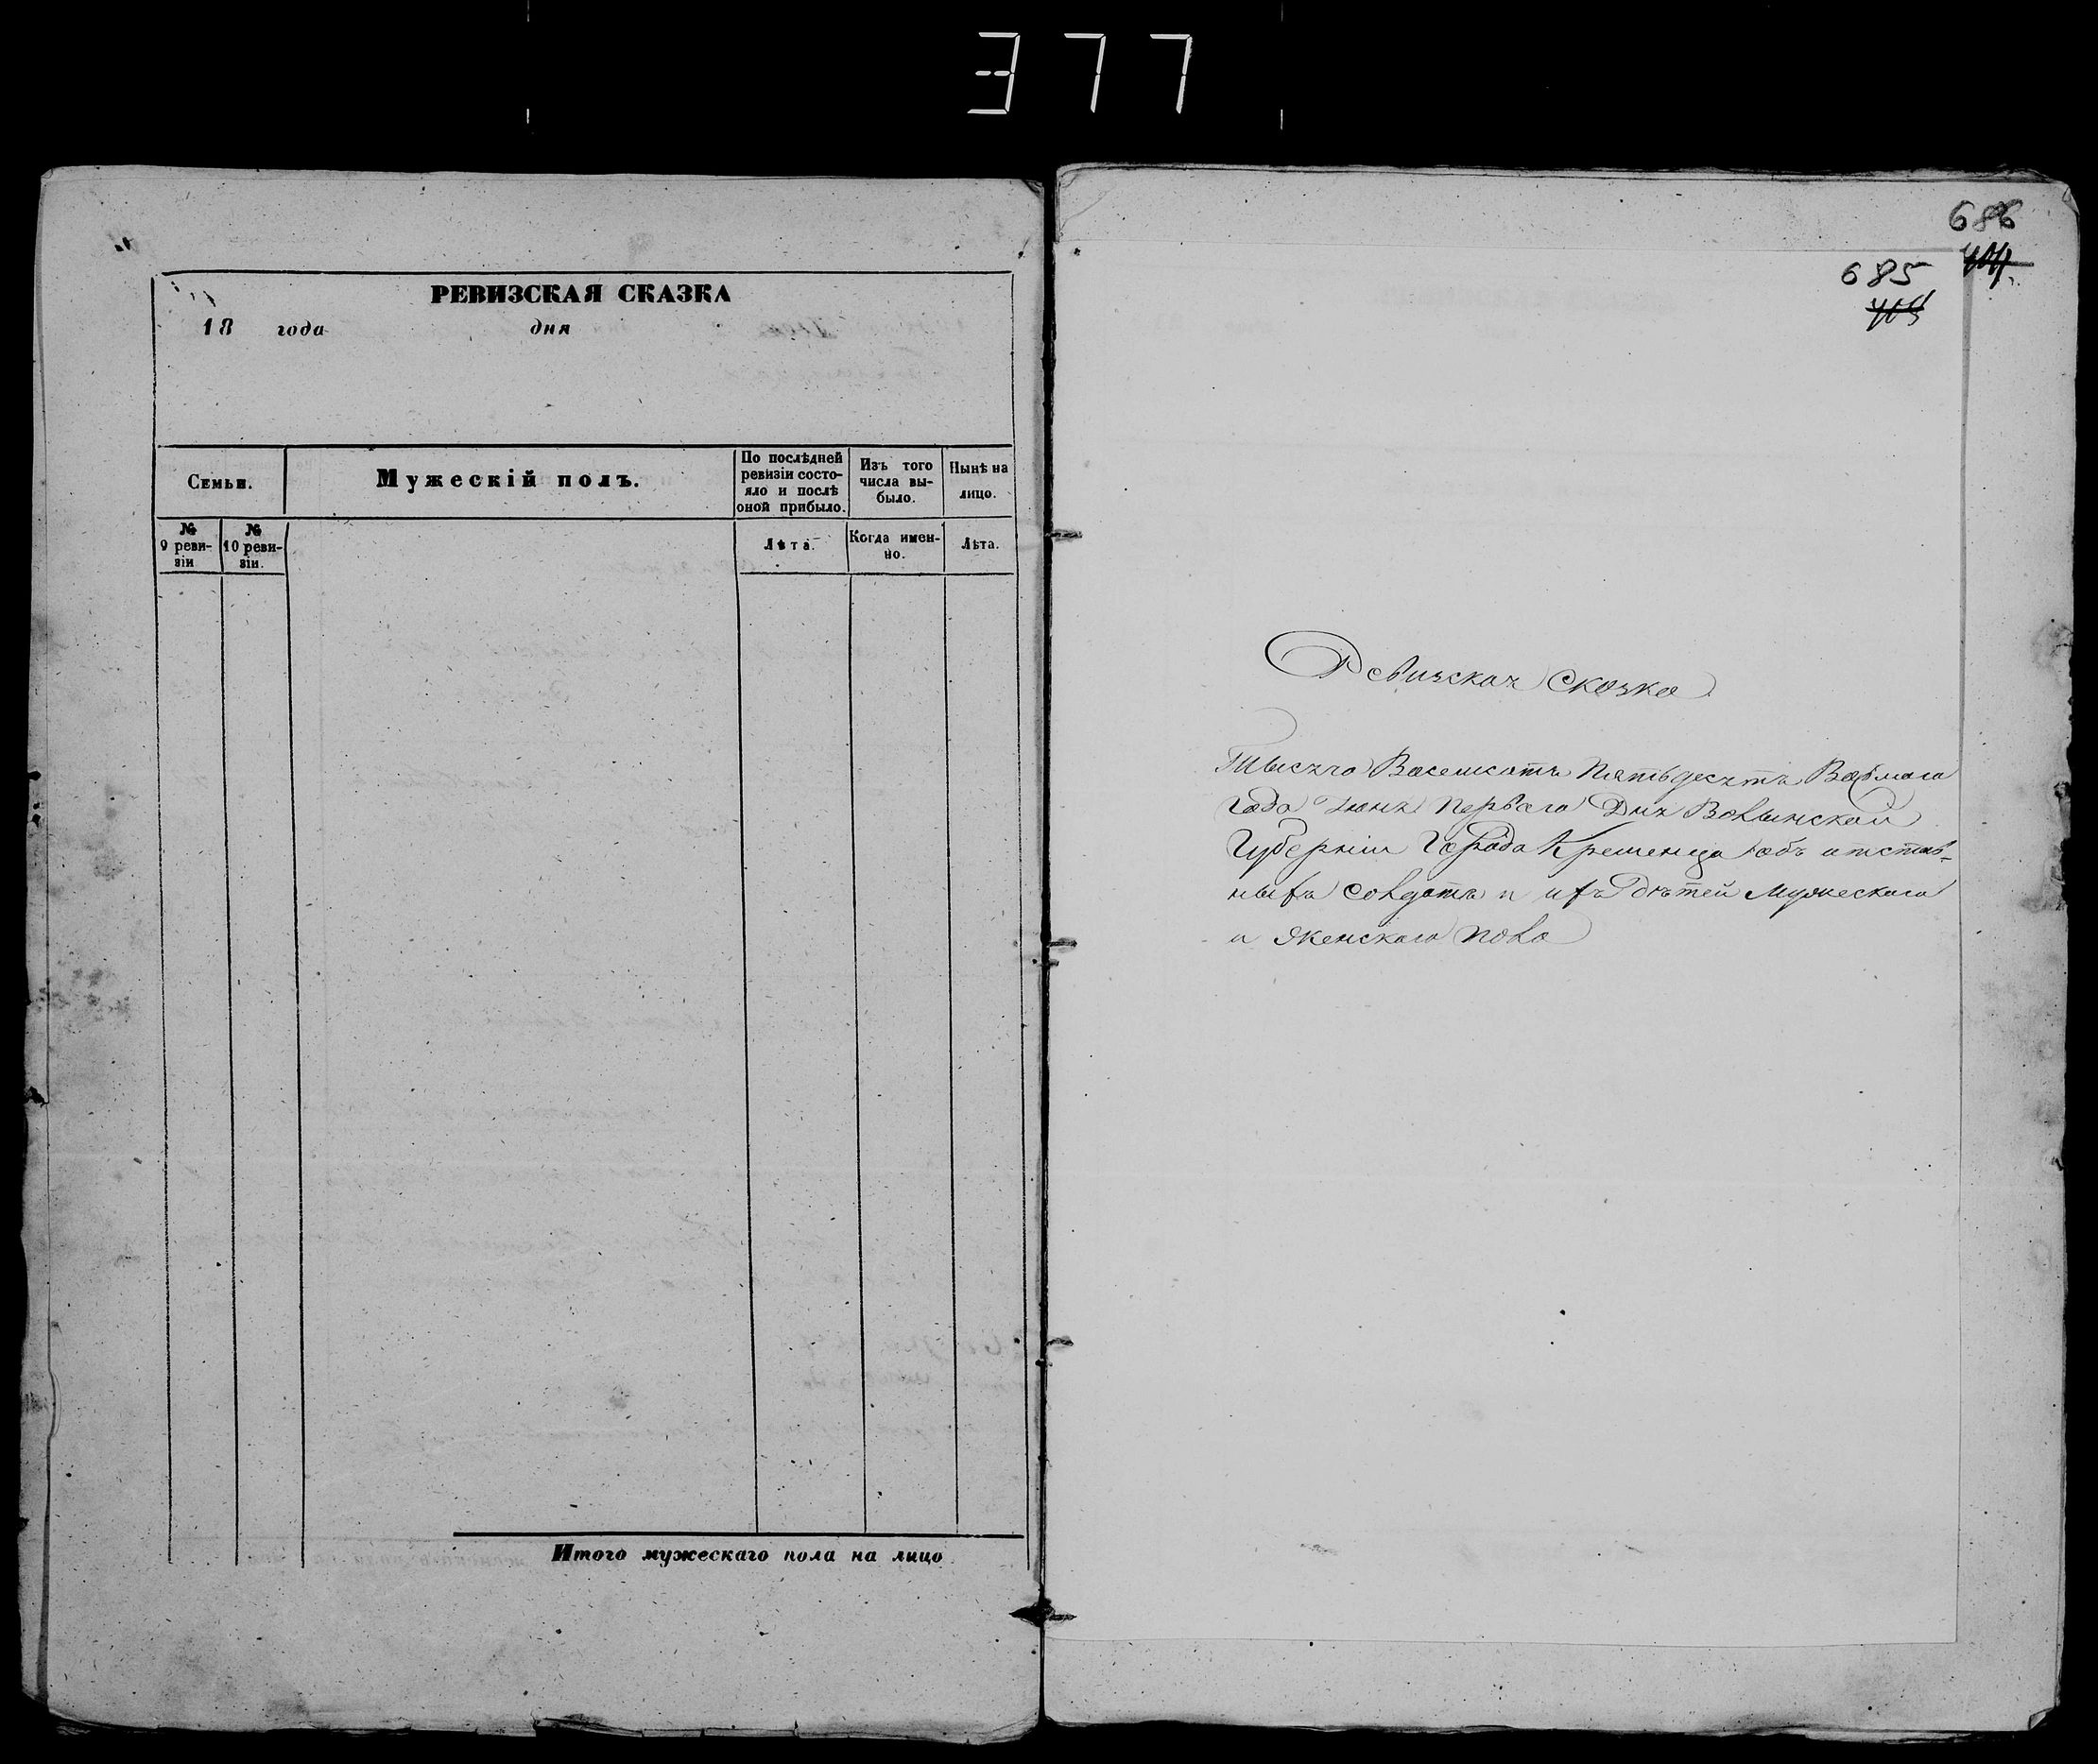 377
РЕВИЗСКАЯ СКАЗКА
18 года дня
Семьи.
Мужескій полъ.
По послѣдней
ревизіи состо-
яло и послѣ
оной прибыло.
Изъ того
числа вы-
было.
Нынѣ на
лицо.
№
9 реви-
зіи
№
10 реви-
зіи.
Лѣта.
Когда имен-
но.
Лѣта.
Итого мужескаго пола на лицо
686
685
Ревизская Сказка
Тысяча Восемсотъ Пятьдесятъ Восмаго
года Іюня Перваго Дня Волынской
Губерніи Города Кременца объ отстав-
ныхъ солдатъ и ихъ дѣтей Мужескаго
и Женскаго пола